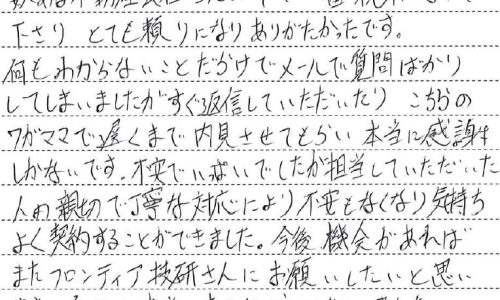 下さり とても頼りになりありがたかったです。
何もわからないことだらけでメールで質問ばかり
してしまいましたがすぐ返信していただいたり こちらの
ワガママで遅くまで内見させてもらい 本当に感謝
しかないです。不安でいっぱいでしたが担当していただいた
人の親切で丁寧な対応により不安もなくなり気持ち
よく契約することができました。今後 機会があれば
またフロンティア技研さんに お願いしたいと思い